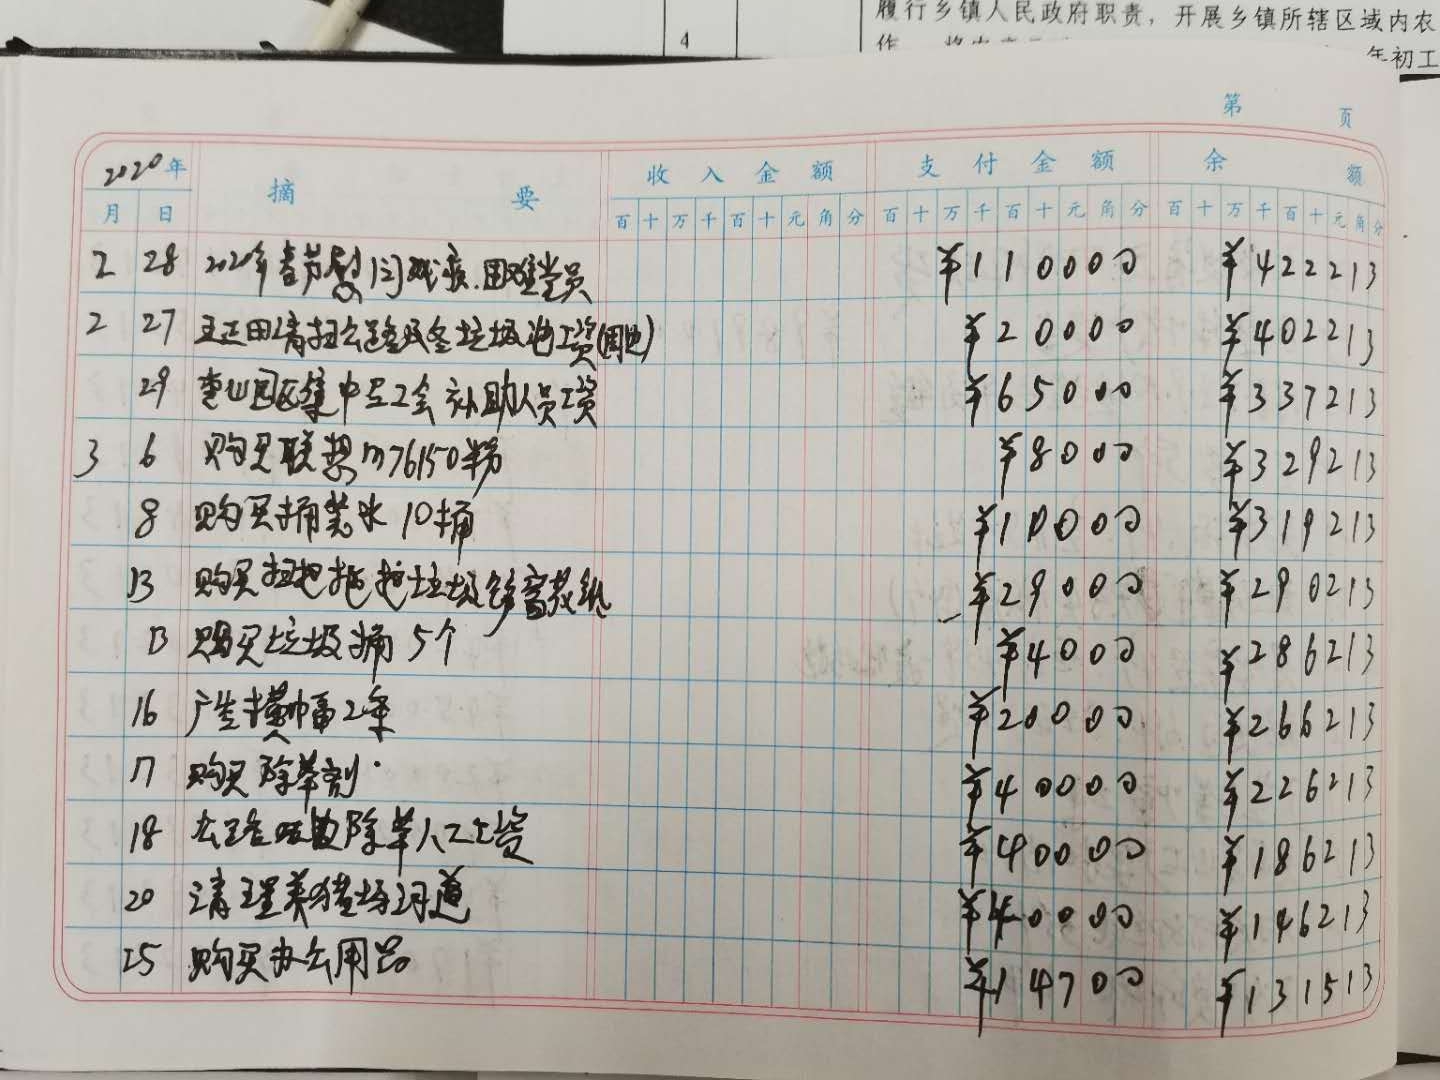 4
履行乡镇人民政府职责，开展乡镇所辖区域内农
年初工
第 页
2020年 摘 要 收入金额 支付金额 余 额
月 日 百 十 万 千 百 十 元 角 分 百 十 万 千 百 十 元 角 分 百 十 万 千 百 十 元 角 分
2 28 2020年春节慰问残疾.困难党员 ¥1100000 ¥422213
2 27 王正田清扫公路及冬垃圾池工资 ¥200000 ¥402213
29 园区集中 工会 补助人员工资 ¥65000 ¥337213
3 6 购买联想m76150粉 ¥8000 ¥329213
8 购买桶装水10桶 ¥10000 ¥319213
13 购买扫把拖把垃圾 ¥29000 ¥290213
13 购买垃圾桶5个 ¥4000 ¥286213
16 广告横幅2条 ¥20000 ¥266213
17 购买除草剂 ¥40000 ¥226213
18 公路 除草人工工资 ¥40000 ¥186213
20 清理养猪场河道 ¥40000 ¥146213
25 购买办公用品 ¥14700 ¥131513